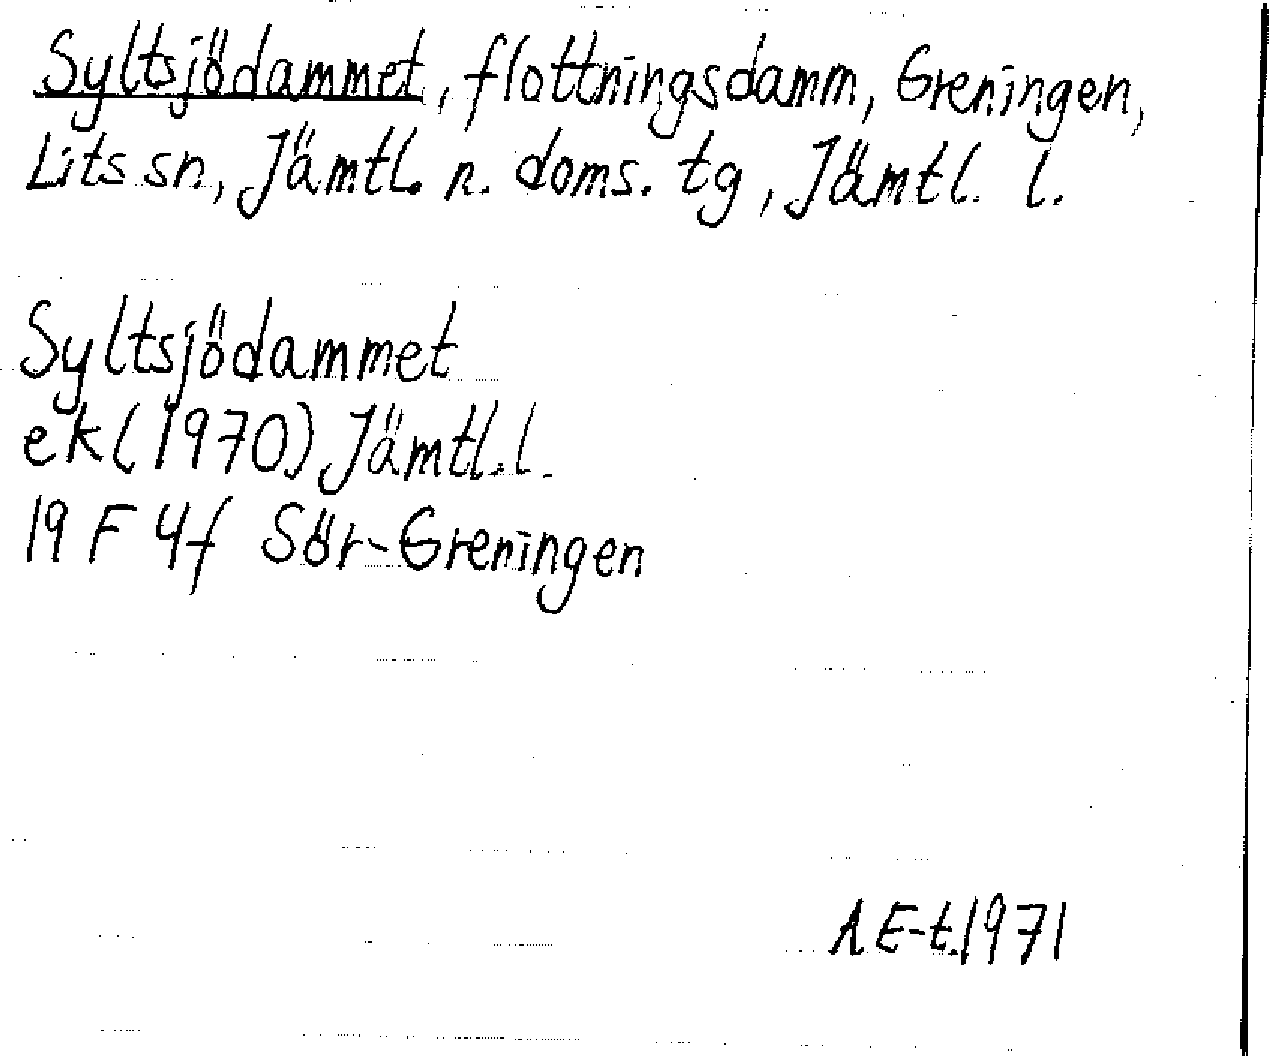 Syltsjödammet, flottningsdamm, Greningen,
Lits sn, Jämtl. n. doms. tg, Jämtl. l.
Syltsjödammet
ek (1970) Jämtl. l.
19 F 4f Sör-Greningen
A E-t. 1971